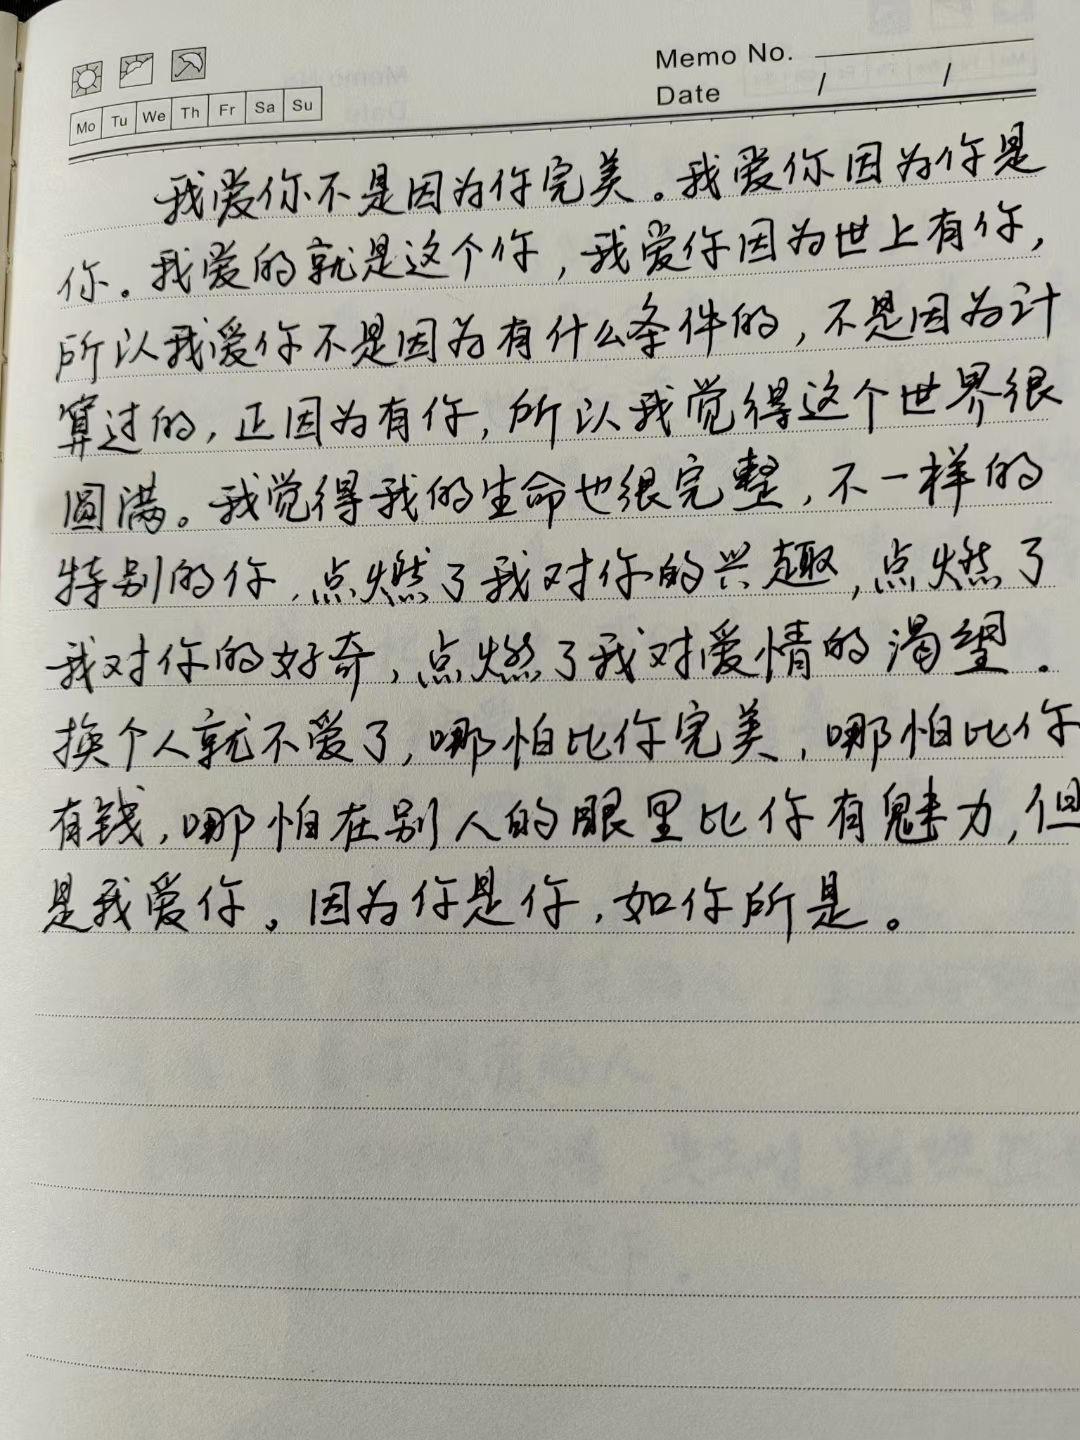 Memo No.
Date / /
Mo Tu We Th Fr Sa Su
我爱你不是因为你完美。我爱你因为你是
你。我爱的就是这个你,我爱你因为世上有你,
所以我爱你不是因为有什么条件的,不是因为计
算过的,正因为有你,所以我觉得这个世界很
圆满。我觉得我的生命也很完整,不一样的
特别的你,点燃了我对你的兴趣,点燃了
我对你的好奇,点燃了我对爱情的渴望.
换个人就不爱了,哪怕比你完美,哪怕比你
有钱,哪怕在别人的眼里比你有魅力,但
是我爱你。因为你是你,如你所是。